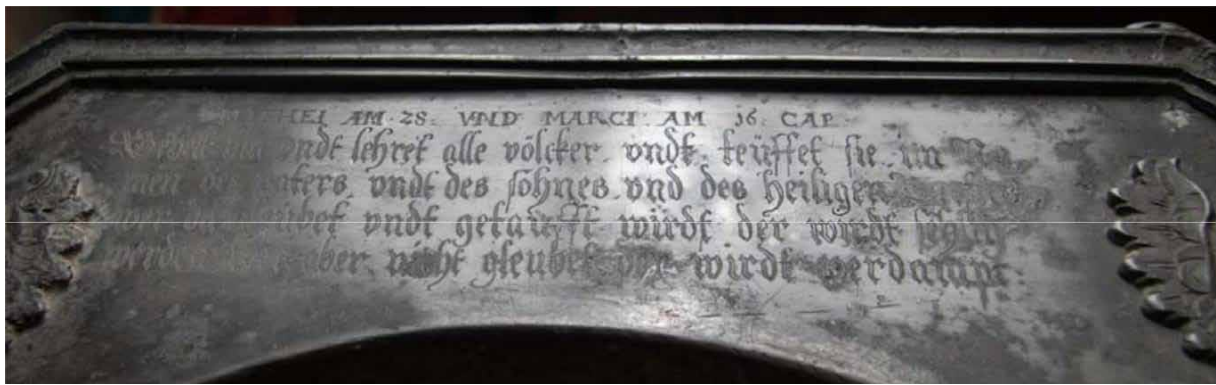 MATTHEI AM 28. VND MARCI AM 16 CAP.
Gehet vndt lehret alle völcker vndt teüffet sie im Na
men des Vaters vndt des sohnes vnd des heiligen
gleubet vndt getaufft würdt der wirdt selig
werden aber nicht gleubet der wirdt verdampt